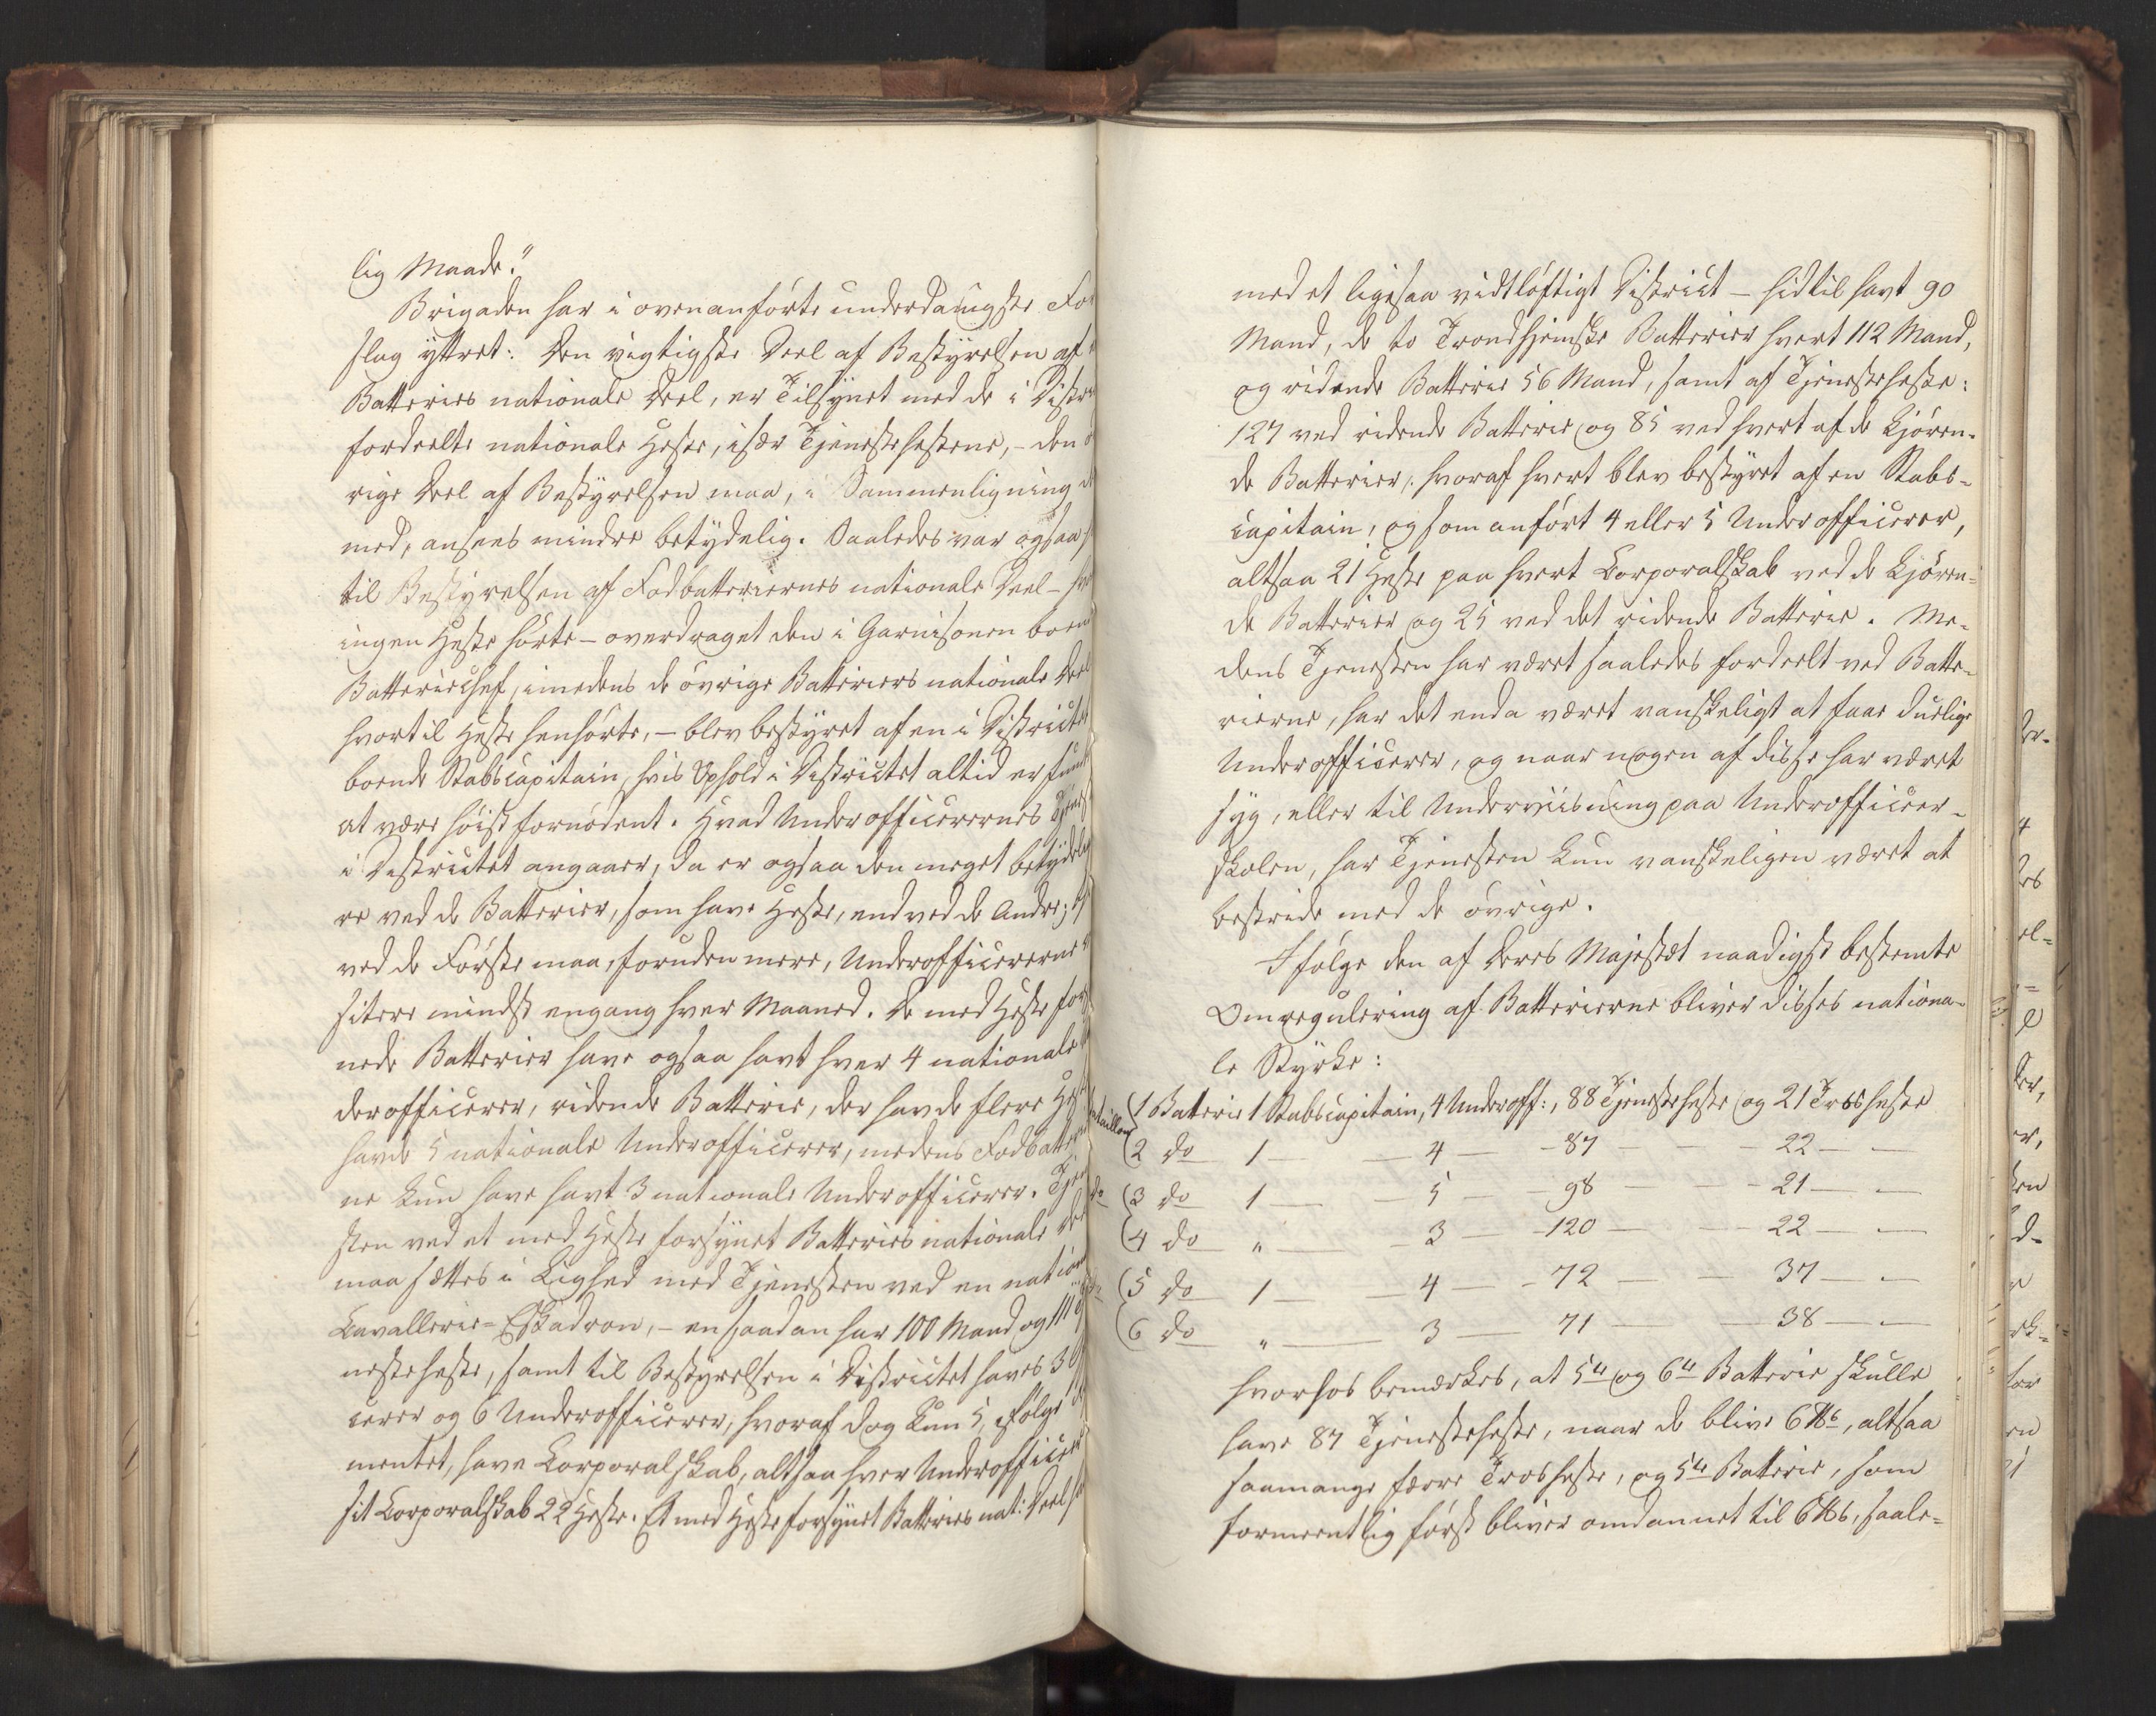 lig Maade."
Brigaden har i ovenanførte underdanigste For
slag yttret: Den vigtigste Deel af Bestyrelsen af
Batteries nationale Deel, er Tilsynet med de i Distr
fordeelte nationale Heste, især Tjenestehestene, - den ö
vrige Deel af Bestyrelsen maa, i Sammenligning
med, ansees mindre betydelig. Saaledes var ogsaa
til Bestyrelsen af Fodbatteriernes nationale Deel - hvor
ingen Heste hörte - overdraget den i Garnisonen boen
Batteriechef, imedens de övrige Batteriers nationale Deel
hvortil Heste henhörte, - blev bestyret af en i Districtet
boende Stabscapitain, hvis Ophold i Districtet altid er fund
at være höist fornödent. Hvad Underofficerernes Tjenes
i Districtet angaaer, da er ogsaa den meget betydelig
re ved de Batterier, som have Heste, end ved de Andre;
ved de Förste maa, foruden mere, Underofficererne
sitere mindst engang hver Maaned. De med Heste for
nede Batterier have ogsaa havt hver 4 nationale
derofficerer, ridende Batterie, der havde flere He
havde 5 nationale Underofficerer, medens Fodbatteri
ne kun have havt 3 nationale Underofficerer. Tjene
sten ved et med Heste forsynet Batteries nationale Deel
maa sættes i Lighed med Tjenesten ved en nation
Cavallerie-Eskadron, - en saadan har 100 Mand og 111
nesteheste, samt til Bestyrelsen i Districtet haves 3
cerer og 6 Underofficerer, hvoraf dog kun 5, ifölge
mentet, have Corporalskab, altsaa hver Underofficer
sit Corporalskab 22 Heste. Et med Heste forsynet Batteries nat: Deel
med et ligesaa vidtlöftigt District - hidtil havt 90
Mand, de to Trondhjemske Batterier hvert 112 Mand,
og ridende Batterie 56 Mand, samt af Tjenesteheste:
127 ved ridende Batterie og 85 ved hvert af de kjören-
de Batterier, hvoraf hvert blev bestyret af en Stabs-
capitain, og som anfört 4 eller 5 Underofficerer,
altsaa 21 Heste paa hvert Corporalskab ved de kjören-
de Batterier og 25 ved det ridende Batterie. Me-
dens Tjenesten har været saaledes fordeelt ved Batte-
rierne, har det enda været vanskeligt at faae duelige
Underofficerer, og naar nogen af disse har været
syg, eller til Underviisning paa Underofficeer-
skolen, har Tjenesten kun vanskeligen været at
bestride med de övrige.
Ifölge den af Deres Majestæt naadigst bestemte
Omregulering af Batterierne bliver disses nationa-
le Styrke:
1 Batterie 1 Stabscapitain, 4 Underoff:, 88 Tjenesteheste og 21 Trosheste
2 do 1 — — 4 — - 87 — — 22 — —
do 3 do 1 — — 5 — 98 — — 21 — —
4 do " — — 3 — - 120 — — 22 — —
5 do 1 — — 4 — - 72 — — 37 — —
6 do " — — 3 — 71 — — 38 — —
hvorhos bemærkes, at 5te og 6te Batterie skulle
have 87 Tjenesteheste, naar de blive 6 ℔s, altsaa
saamange færre Trosheste, og 5te Batterie, som
formeentlig först bliver omdannet til 6 ℔s, saale-